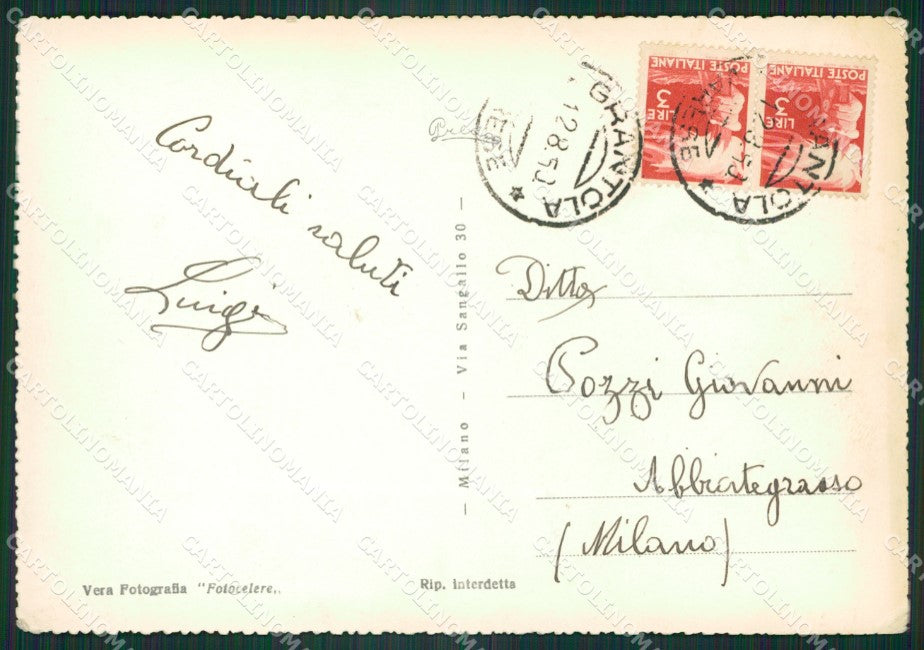 Cordiali saluti
Luigi
GRANTOLA
12.8.50
POSTE ITALIANE
LIRE 3
POSTE ITALIANE
LIRE 3
Ditta
Pozzi Giovanni
Abbiategrasso
(Milano)
– Milano – Via Sangallo 30 –
Vera Fotografia "Fotocelere„
Rip. interdetta
CARTOLINOMANIA